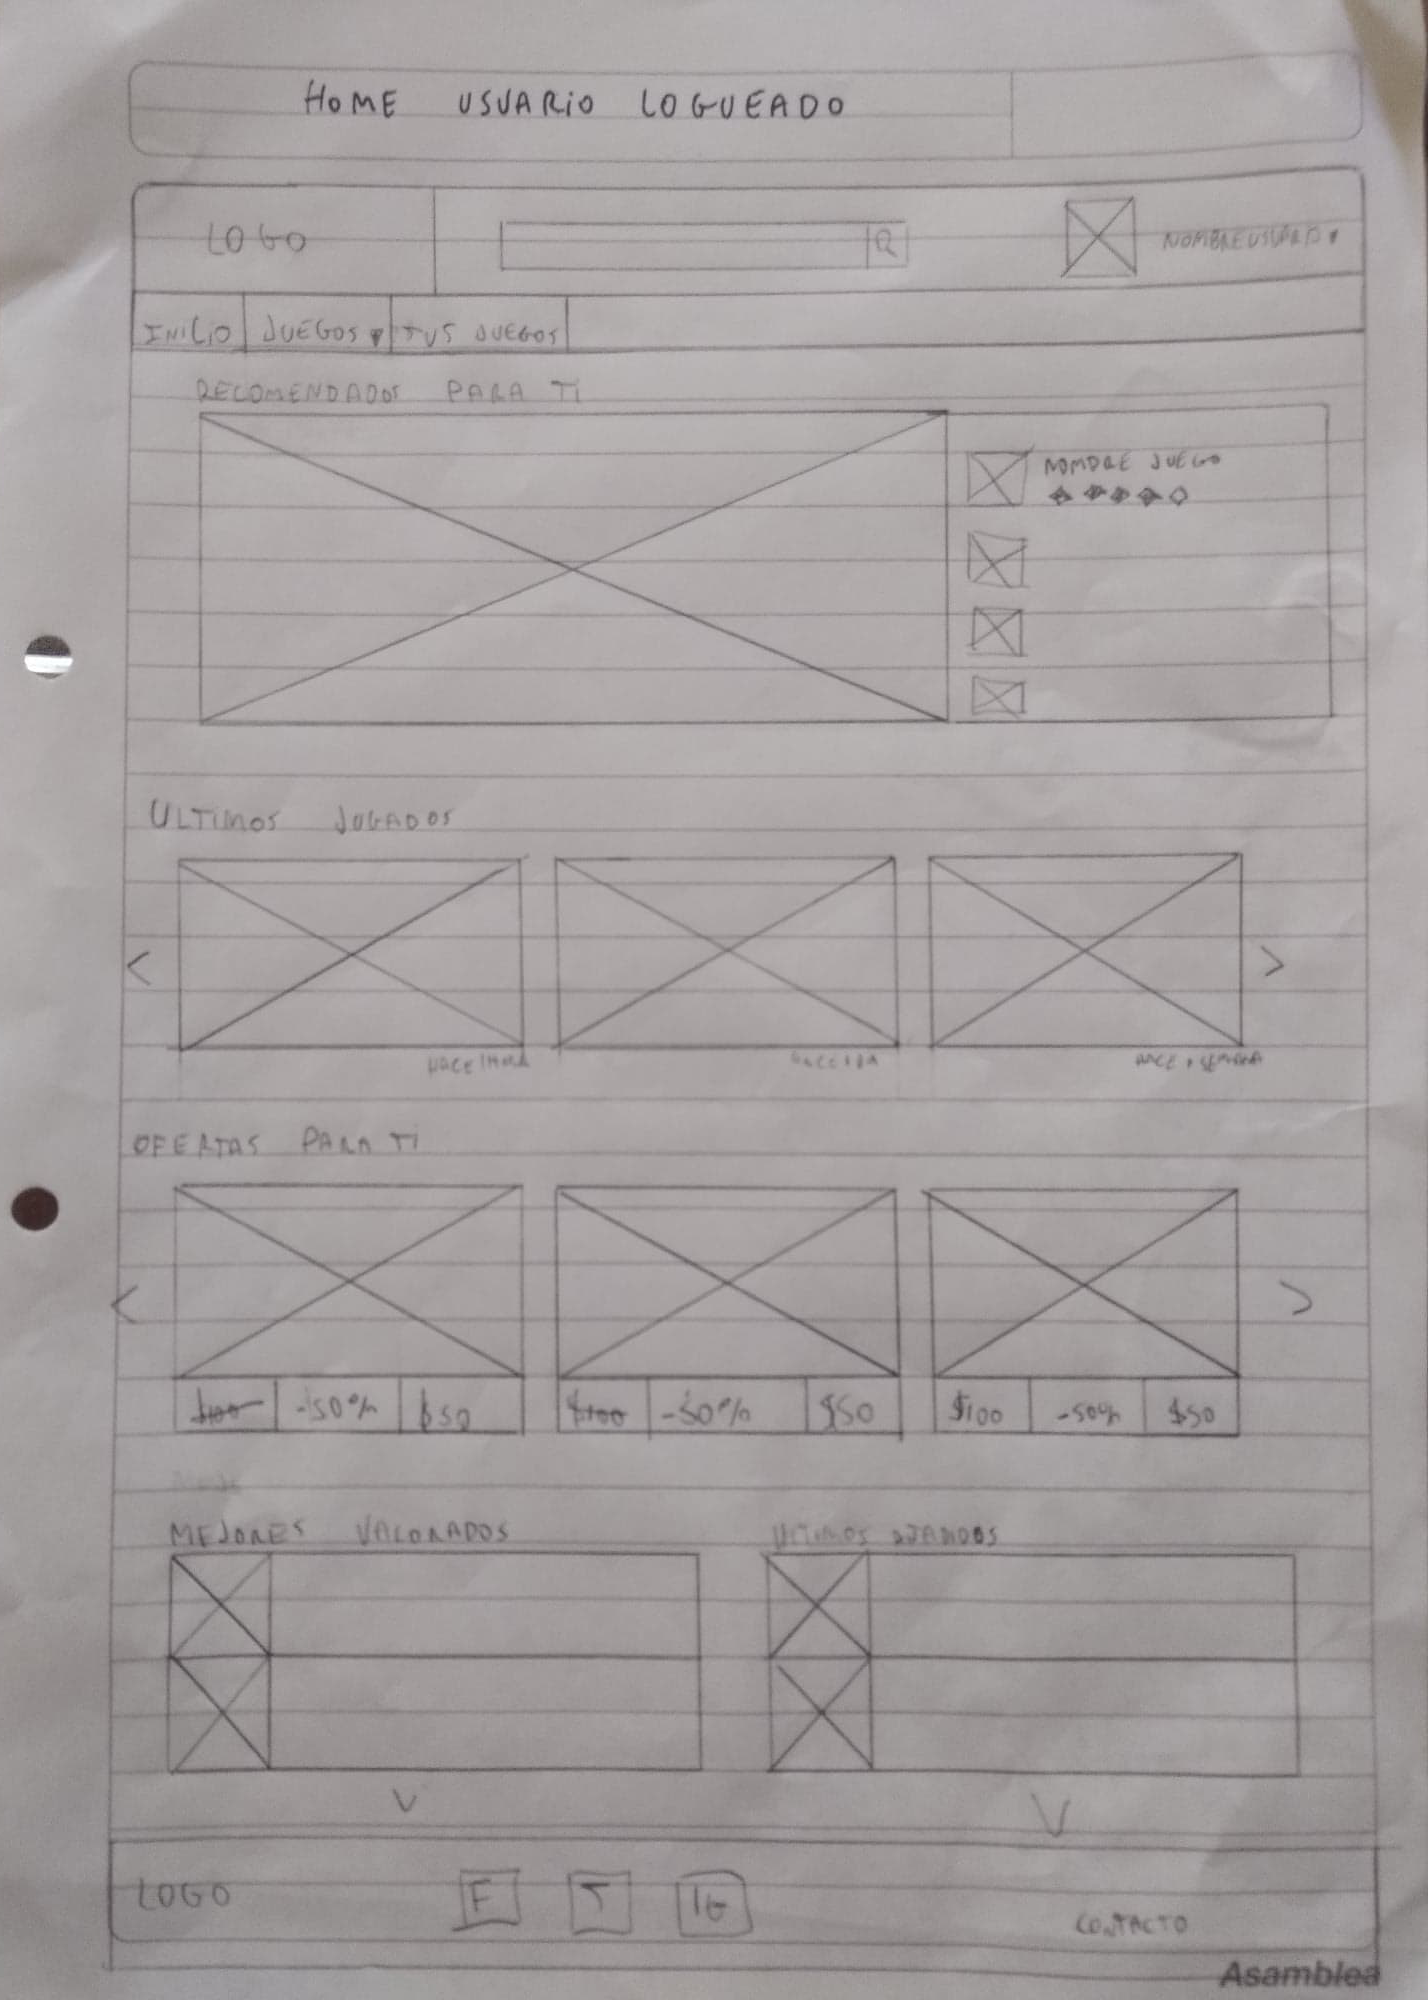 HOME USUARIO LOGUEADO
LOGO
NOMBRE USUARIO
INICIO JUEGOS TUS JUEGOS
RECOMENDADOS PARA TI
NOMBRE JUEGO
ULTIMOS JUGADOS
HACE 1 HORA
HACE 1 DIA
HACE 1 SEMANA
OFERTAS PARA TI
$100 -50% $50
$100 -50% $50
$100 -50% $50
MEJORES VALORADOS
ULTIMOS
LOGO
F
T
IG
CONTACTO
Asamblea